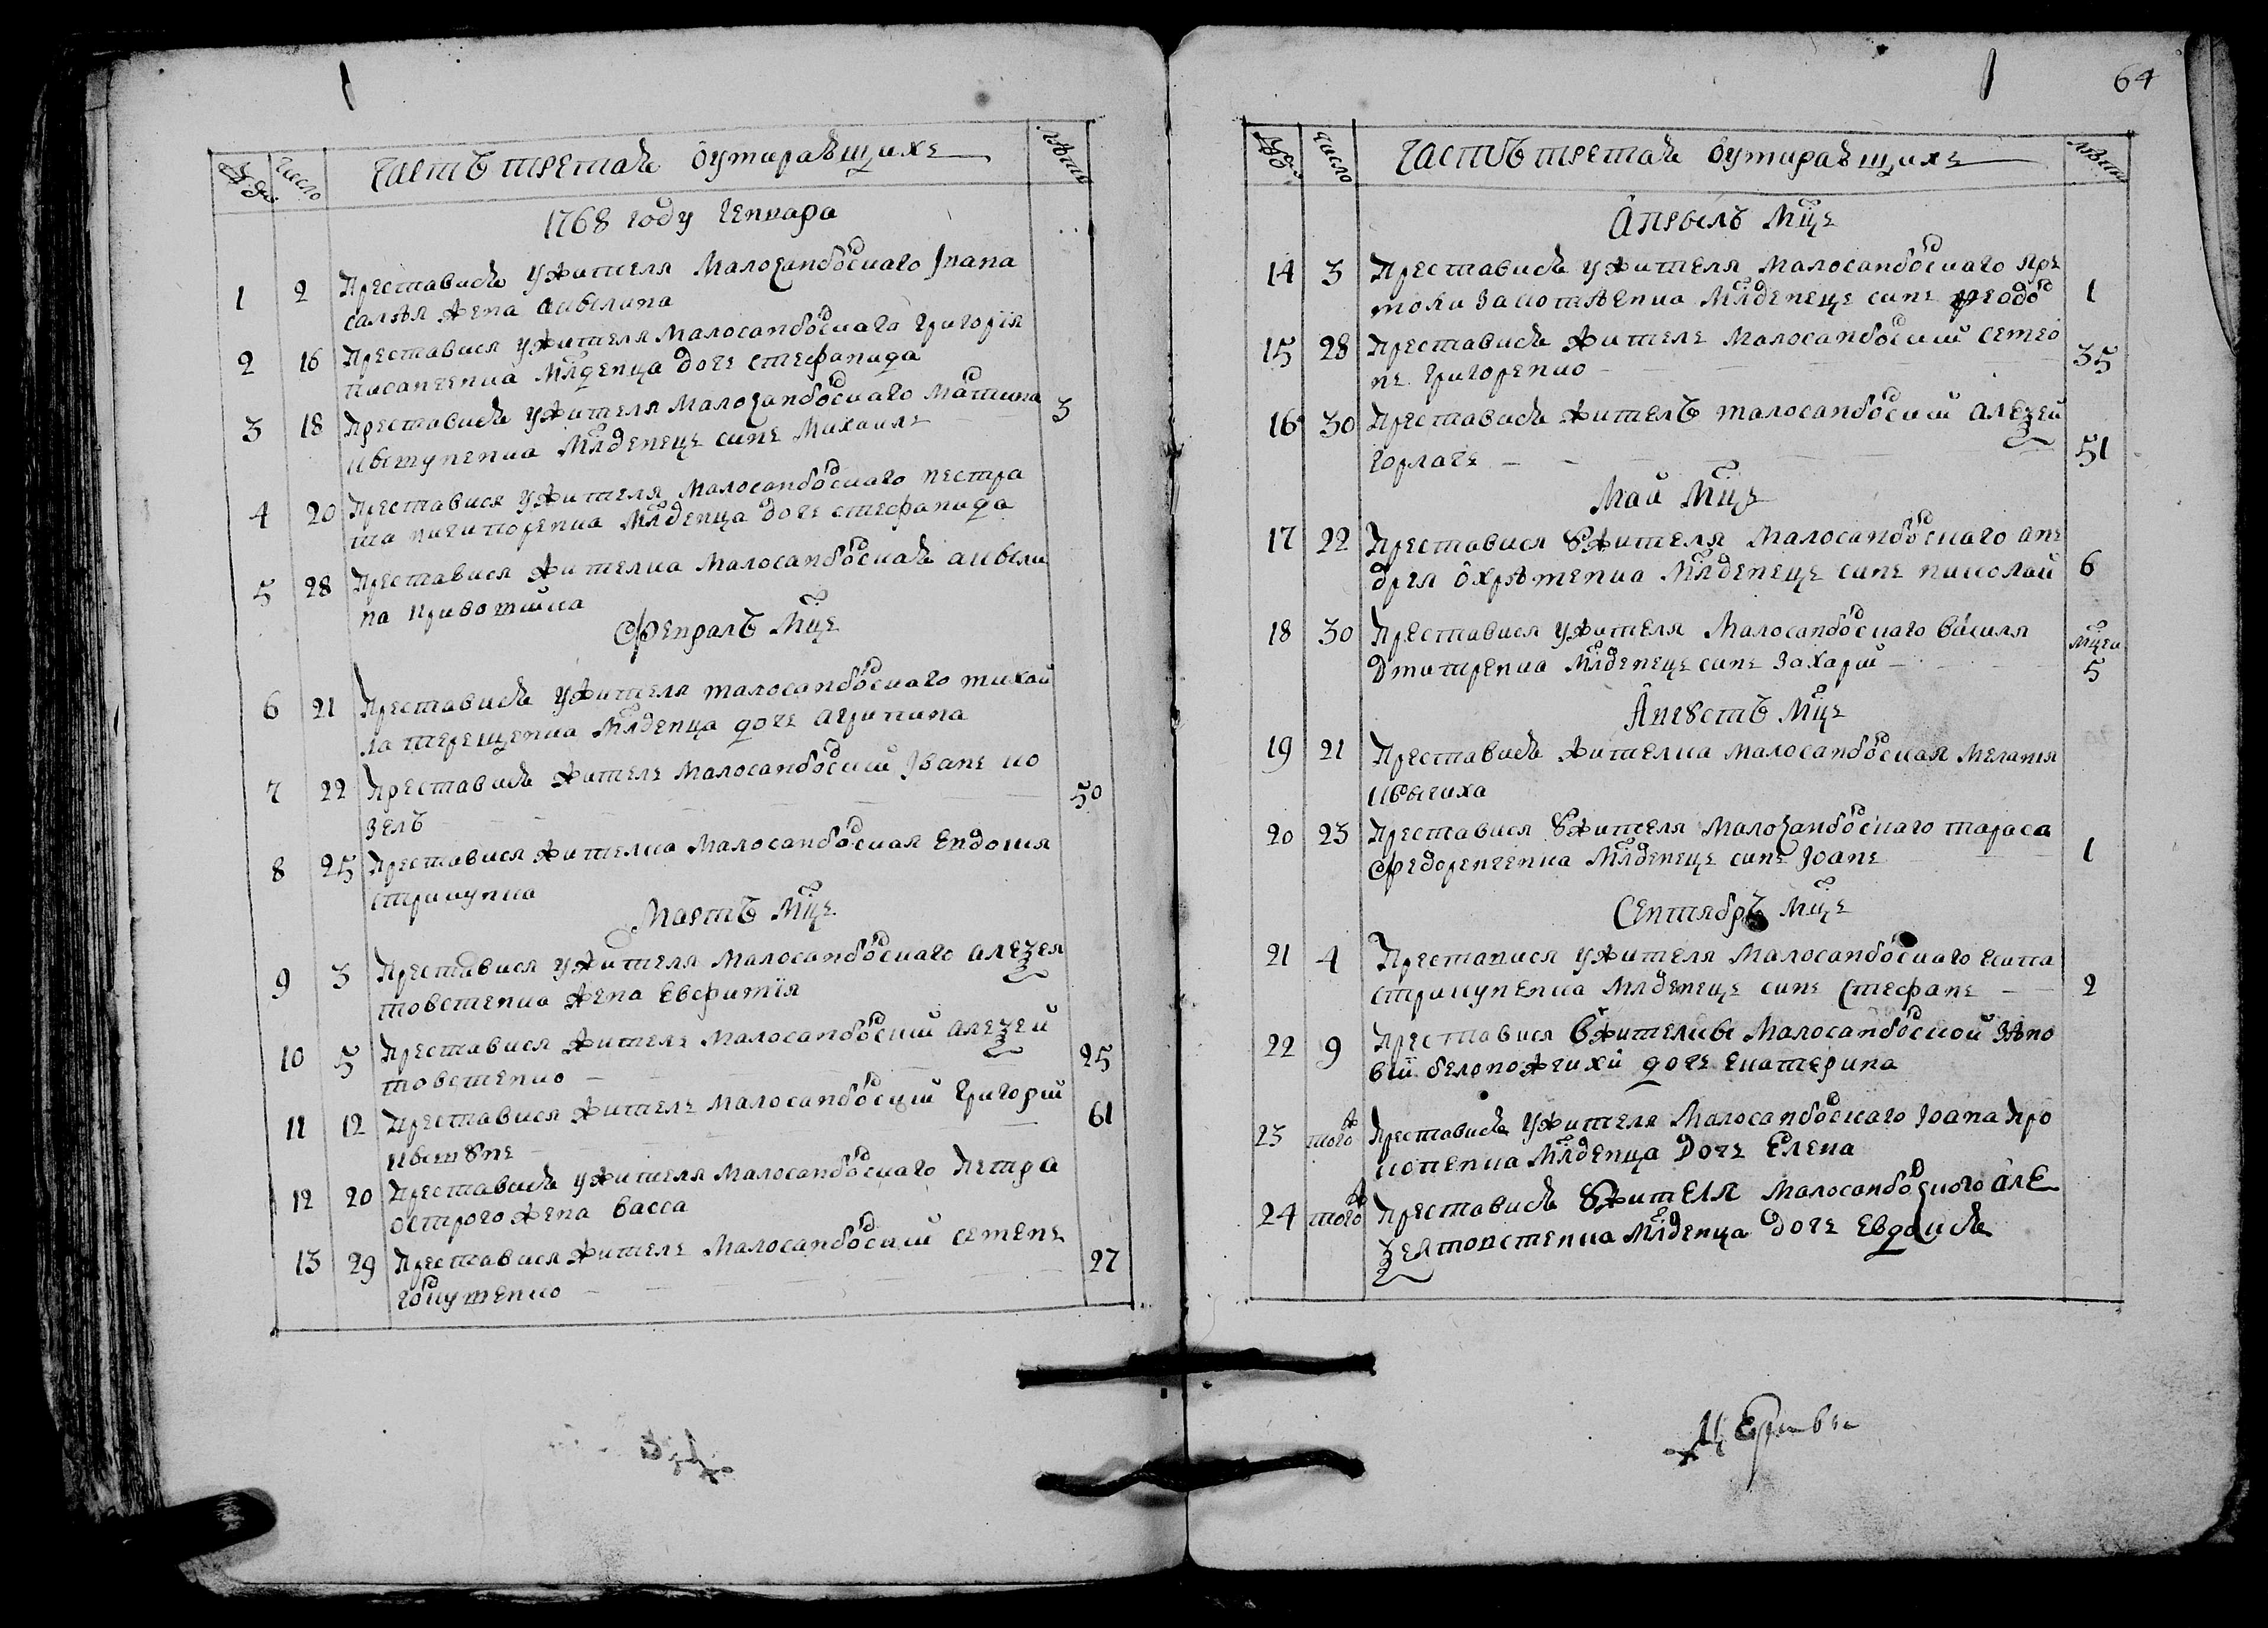 64
№ число Частъ третаѣ оумирающихъ лѣта
1768 году Генвара
1 2 Преставися у жителя Малосамборскаго Івана
жена акилина
2 16 Преставися у жителя Малосамборскаго Григорія
Писанченка Младенца дочъ стефанида
3 18 Преставися у жителя Малосамборскаго 3
Младенецъ синъ Михаилъ
4 20 Преставися у жителя Малосамборскаго нестра
та ничипоренка Младенца дочъ стефанида
5 28 Преставися жителка Малосамборскаѣ акили
на
Февралъ Мцъ
6 21 Преставися у жителя малосамборскаго михай
ла терещенка Младенца дочъ агрипина
7 22 Преставися жителъ Малосамборский Іванъ ко 50
зелъ
8 25 Преставися жителка Малосамборская Евдокия
стрикунка
Мартъ Мцъ
9 3 Преставися у жителя Малосамборскаго алеѯея
товстенка жена Евфимія
10 5 Преставися жителъ Малосамборский алеѯей 25
товстенко
11 12 Преставися жителъ Малосамборский Григорий 61
12 20 Преставися у жителя Малосамборскаго Петра
острого жена васса
13 29 Преставися жителъ Малосамборский семенъ 27
№ число Частъ третаѣ оумирающихъ лѣта
Априлъ Мцъ
14 3 Преставися у жителя Малосамборскаго
Младенецъ синъ феодоръ 1
15 28 Преставися жителъ Малосамборский семео
нъ григоренко 35
16 30 Преставися жителъ малосамборский алеѯей
горлачъ 51
Май Мцъ
17 22 Преставися у жителя Малосамборскаго ан
дрея охрѣменка Младенецъ синъ николай 6
18 30 Преставися у жителя Малосамборскаго василя мцей
Дмитренка Младенецъ синъ захарий 5
Августъ Мцъ
19 21 Преставися жителка Малосамборская Меланія
20 23 Преставися у жителя Малосамборскаго тараса
Федоренченка Младенецъ синъ Іоанъ 1
Септябръ Мцъ
21 4 Преставися у жителя Малосамборскаго
стрикуненка Младенецъ синъ Стефанъ 2
22 9 Преставися в жителки Малосамборской зѣно
вии белоножчихи дочъ Екатерина
23 тогож Преставися у жителя Малосамборскаго Іоана про
копенка Младенца Дочъ Елена
24 тогож Преставися у жителя Малосамборского але
ѯея товстенка Младенца дочъ Евдокиѣ